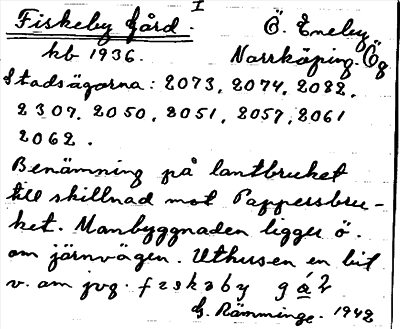 I
Fiskeby Gård. Ö. Eneby
kb 1936. Norrköping. Ög
Stadsägorna: 2073, 2074, 2082,
2307, 2050, 2051, 2057, 2061
2062.
Benämning på lantbruket
till skillnad mot Pappersbru-
ket. Manbyggnaden ligger ö.
om järnvägen. Uthusen en bit
v. om jvg. fıskəby gå
G. Rämminge. 1942